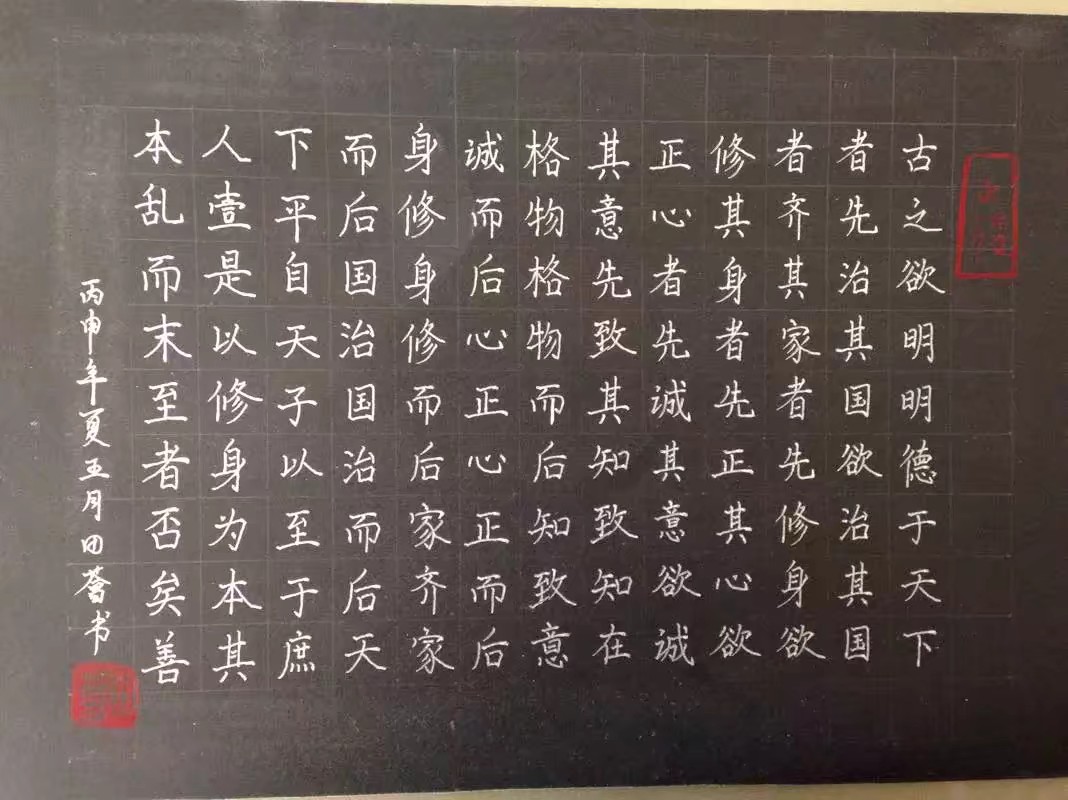 古之欲明明德于天下
者先治其国欲治其国
者齐其家者先修身欲
修其身者先正其心欲
正心者先诚其意欲诚
其意先致其知致知在
格物格物而后知致意
诚而后心正心正而后
身修身修而后家齐家
而后国治国治而后天
下平自天子以至于庶
人壹是以修身为本其
本乱而末至者否矣善
丙申年夏五月田荟书